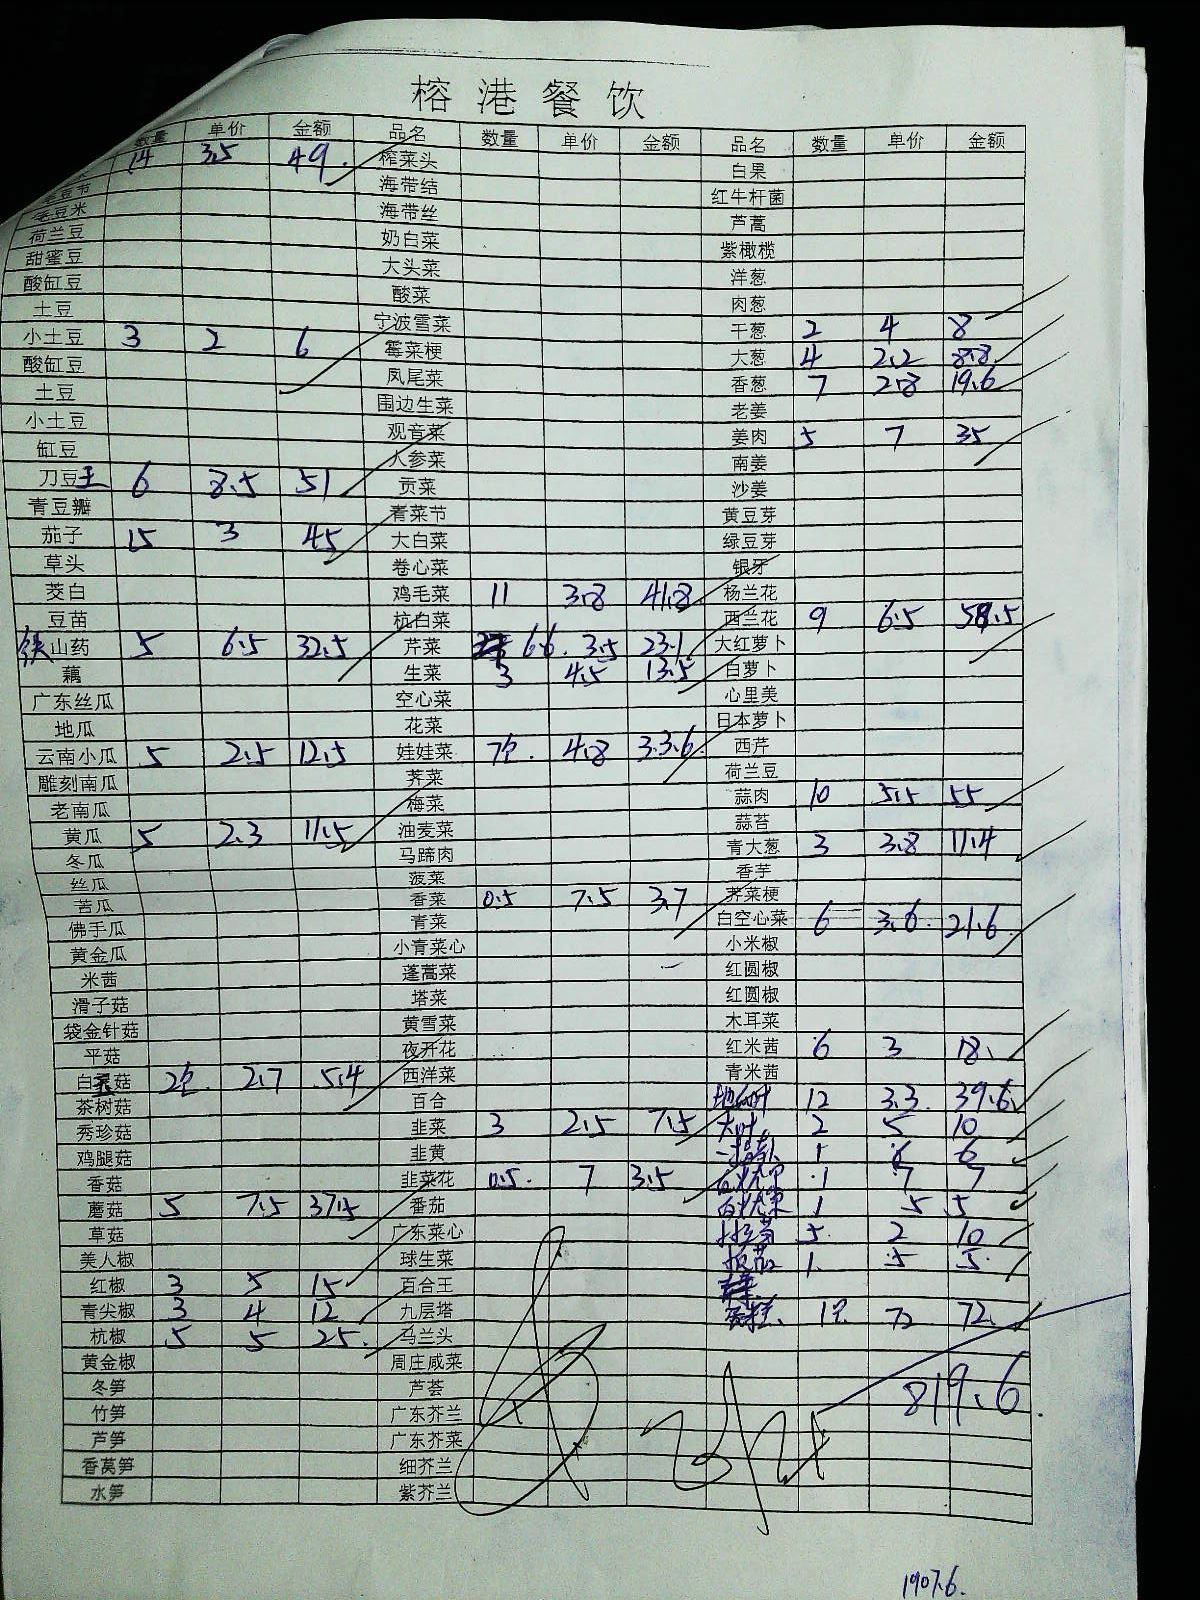 榕港餐饮
数量 单价 金额 品名 数量 单价 金额 品名 数量 单价 金额
14 3.5 49. 榨菜头 白果
毛豆节 海带结 红牛杆菌
毛豆米 海带丝 芦蒿
荷兰豆 奶白菜 紫橄榄
甜蜜豆 大头菜 洋葱
酸缸豆 酸菜 肉葱
土豆 宁波雪菜 干葱 2 4 8
小土豆 3 2 6 霉菜梗 大葱 4 2.2 8.8
酸缸豆 凤尾菜 香葱 7 2.8 19.6
土豆 围边生菜 老姜
小土豆 观音菜 姜肉 5 7 35
缸豆 人参菜 南姜
刀豆王 6 8.5 51 贡菜 沙姜
青豆瓣 青菜节 黄豆芽
茄子 15 3 45 大白菜 绿豆芽
草头 卷心菜 银牙
茭白 鸡毛菜 11 3.8 41.8 杨兰花
豆苗 杭白菜 西兰花 9 6.5 58.5
铁山药 5 6.5 32.5 芹菜 6.6. 3.5 23.1 大红萝卜
藕 生菜 3 4.5 13.5 白萝卜
广东丝瓜 空心菜 心里美
地瓜 花菜 日本萝卜
云南小瓜 5 2.5 12.5 娃娃菜 7包. 4.8 3.3.6. 西芹
雕刻南瓜 荠菜 荷兰豆
老南瓜 梅菜 蒜肉 10 5.5 55
黄瓜 5 2.3 11.5 油麦菜 蒜苔
冬瓜 马蹄肉 青大葱 3 3.8 11.4
丝瓜 菠菜 香芋
苦瓜 香菜 0.5 7.5 3.7 荠菜梗
佛手瓜 青菜 白空心菜 6 3.6. 21.6
黄金瓜 小青菜心 小米椒
米茜 蓬蒿菜 红圆椒
滑子菇 塔菜 红圆椒
袋金针菇 黄雪菜 木耳菜
平菇 夜开花 红米茜 6 3 18.
白灵菇 2包. 2.7 5.4 西洋菜 青米茜
茶树菇 百合 12 3.3. 39.6
秀珍菇 韭菜 3 2.5 7.5 大叶 2 5 10
鸡腿菇 韭黄 1 6 6
香菇 韭菜花 0.5. 7 3.5 1 7 7
蘑菇 5 7.5 37.5 番茄 1 5 5
草菇 广东菜心 5. 2 10
美人椒 球生菜 1. 5 5.
红椒 3 5 15 百合王
青尖椒 3 4 12 九层塔 蛋糕. 1包. 72 72.
杭椒 5 5 25. 马兰头
黄金椒 周庄咸菜
冬笋 芦荟 819.6.
竹笋 广东芥兰
芦笋 广东芥菜
香莴笋 细芥兰
水笋 紫芥兰
1907.6.